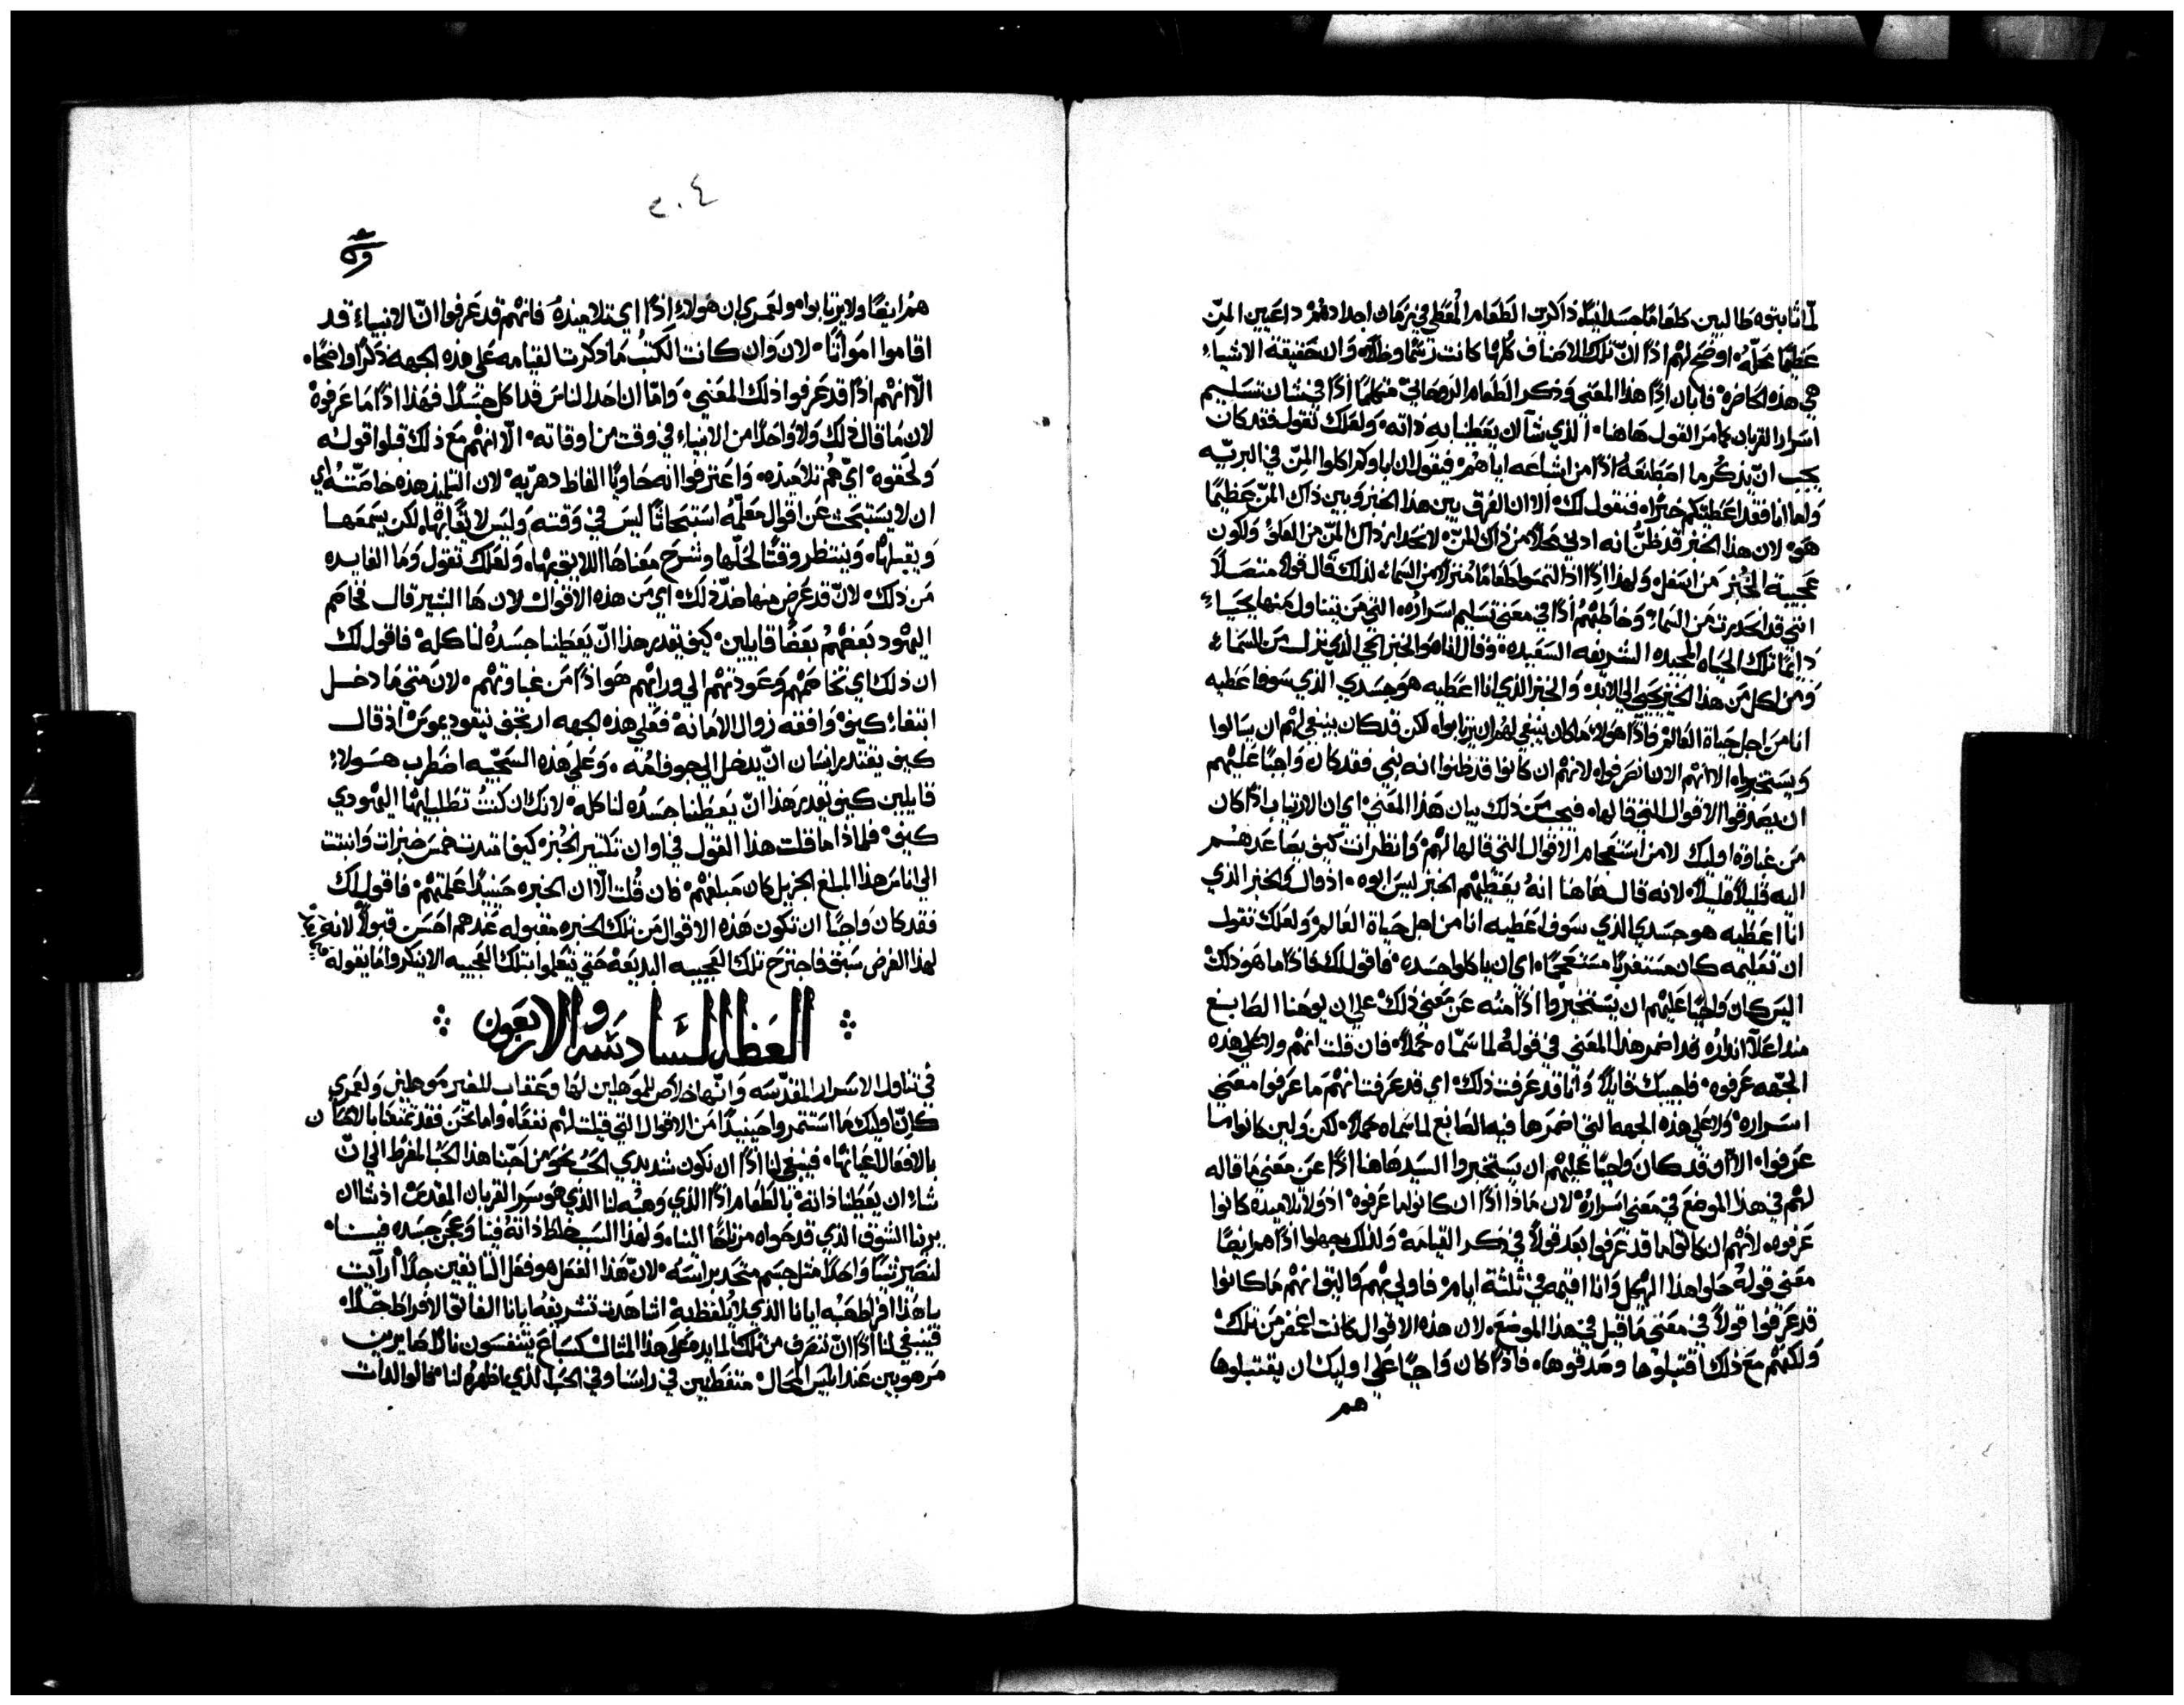 لما اتا بتوه طالبين طعامًا جسدانيًا ذاكرين الطعام المعطي في زمان اجدادهم داعيين المن
عظيمًا محله اوضح لهم اذًا ان تلك الاصناف كلها كانت رسمًا وظلًا وان حقيقة الاشياء
هي هذه الحاضره فابان اذًا هذا المعني وذكر الطعام الروحاني متكلمًا اذًا في شان تسليم
اسرار القربان كما مر القول هاهنا الذي شآ ان يعطينا به ذاته ولعلك تقول فقد كان
يجب ان يذكر ما اصطنعه اذًا من اشباعه اياهم فيقول ان اباوكم اكلوا المن في البريه
واما انا فقد اعطيتكم خبزًا فنقول لك الا ان الفرق بين هذا الخبز وبين ذاك المن عظيمًا
هو لان هذا الخبز قد ظن انه ادني محلًا من ذاك المن لانحدار ذاك المن من العلو ولكون
عجيبة الخبز من اسفل ولهذا اذًا اذ التمسوا طعامًا منزلًا من السماء لذلك قال قولًا متصلًا
انني قد انحدرت من السماء وخاطبهم اذًا في معني تسليم اسراره التي من يتناول منها يحيا
دايمًا تلك الحياه المجيده الشريفه السعيده وقال انا هو الخبز الحي الذي نزل من السماء
ومن اكل من هذا الخبز يحيي الي الابد والخبز الذي انا اعطيه هو جسدي الذي سوف اعطيه
انا من اجل حياة العالم فاذًا هولاء ما كان ينبغي لهم ان يرتابوا لكن قد كان ينبغي لهم ان يسالوا
ويستخبروا الا انهم الان انصرفوا لانهم ان كانوا قد ظنوا انه نبي فقد كان واجبًا عليهم
ان يصدقوا الاقوال التي قالها فيجي من ذلك بيان هذا المعني اي ان الارتياب اذًا كان
من غباوة اوليك لا من استعجام الاقوال التي قالها لهم وانظر انت كيف يصاعدهم
اليه قليلًا قليلًا لانه قال هاهنا انه يعطيهم الخبز ليس ابوه اذ قال والخبز الذي
انا اعطيه هو جسدي الذي سوف اعطيه انا من اجل حياة العالم ولعلك تقول
ان تعليمه كان مستغربًا مستعجمًا اي ان ياكلوا جسده فاقول لك فاذًا ما هو ذلك
اليس كان واجبًا عليهم ان يستخبروا اذًا منه عن معني ذلك علي ان يوحنا الصابغ
منذ اعلا انذاره قد اضمر هذا المعني في قوله لما سماه حملًا فان قلت انهم ولا علي هذه
الجهه عرفوه فاجيبك قايلًا وانا قد عرفت ذلك اي قد عرفت انهم ما عرفوا معني
اسراره ولا علي هذه الجهه التي اضمرها فيه الصابغ لما سماه حملًا لكن ولين كانوا ما
عرفوا الا وقد كان واجبًا عليهم ان يستخبروا السيد هاهنا اذًا عن معني ما قاله
لهم في هذا الموضع في معني اسراره لان ماذا اذًا ان كانوا ما عرفوه اذ ولا تلاميذه كانوا
عرفوه لانهم ان كانوا ما قد عرفوا بعد قولًا في ذكر القيامه ولذلك يجهلوا اذًا هم ايضًا
معني قوله حلوا هذا الهيكل وانا اقيمه في ثلثة ايام فاولي بهم واليق انهم ما كانوا
قد عرفوا قولًا في معني ما قيل في هذا الموضع لان هذه الاقوال كانت اغمض من تلك
ولكنهم مع ذلك اقتبلوها وصدقوها فاذًا كان واجبًا علي اوليك ان يقتبلوها
هم
٢٠٤
هم ايضًا ولا يرتابوا ولعمري ان هولاء اذًا اي تلاميذه فانهم قد عرفوا ان الانبياء قد
اقاموا امواتًا لان وان كانت الكتب ما ذكرت القيامه علي هذه الجهه ذكرًا واضحًا
الا انهم اذًا قد عرفوا ذلك المعني واما ان احد الناس قد اكل جسدًا فهذا اذًا ما عرفوه
لان ما قال ذلك ولا واحدًا من الانبياء في وقت من اوقاته الا انهم مع ذلك قبلوا قوله
ولحقوه اي هم تلاميذه واعترفوا انه حاويًا الفاظ دهريه لان التلميذ هذه خاصته اي
ان لا يستبحث عن اقوال معلمه استبحاثًا ليس في وقته وليس لايقًا بها لكن يسمعها
ويقبلها وينتظر وقتًا لحلها وشرح معناها اللايق بها ولعلك تقول وما الفايده
من ذلك لان قد عرض منها ضد ذلك اي من هذه الاقوال لان ها البشير قال فخاصم
اليهود بعضهم بعضًا قايلين كيف يقدر هذا ان يعطينا جسده لناكله فاقول لك
ان ذلك اي تخاصمهم وعودتهم الي ورايهم هو اذًا من غباوتهم لان متي ما دخل
ابتغاء كيف وافقه زوال الامانه فعلي هذه الجهه ارتجف نيقوديموس اذ قال
كيف يقتدر انسان ان يدخل الي جوف امه وعلي هذه السجيه اضطرب هولاء
قايلين كيف يقدر هذا ان يعطينا جسده لناكله لانك ان كنت تطلب ايها اليهودي
كيف فلماذا ما قلت هذا القول في اوان تكثير الخبز كيف امتدت خمس خبزات وانبثت
الي اناس هذا المبلغ الجزيل كان مبلغهم فان قلت الا ان الخبره حينيذًا علمتهم فاقول لك
فقد كان واجبًا ان تكون هذه الاقوال من تلك الخبره مقبوله عندهم احسن قبولًا لانه
لهذا الغرض سبق فاجترح تلك العجيبه البديعه حتي يتعلموا بتلك العجيبه الا ينكروا ما يقوله
العظه السادسه والاربعون
في تناول الاسرار المقدسه وانها خلاص للموهلين لها وعقاب للغير موهلين ولعمري
كان اوليك ما استثمروا حينيذًا من الاقوال التي قيلت لهم نفعًا واما نحن فقد تمتعنا بالاحسان
بالافعال اعيانها فينبغي لنا اذًا ان نكون شديدي الحب نحو من احبنا هذا الحب المفرط الي ان
شاء ان يعطنا ذاته بالطعام اذًا الذي وهبه لنا الذي هو سر القربان المقدس اذ شا ان
يرينا الشوق الذي قد حواه مرتاحًا الينا ولهذا السبب خلط ذاته فينا وعجن جسده فينا
لنصير شيًا واحدًا مثل جسم متحد براسه لان هذا الفعل هو فعل التايقين جدًا أرآيت
يا هذا افراط حبه ايانا الذي لا يلفظ به اشاهدت تشريفه ايانا الفايق الافراط جدًا
فينبغي لنا اذًا ان ننصرف من تلك المايده علي هذا المثال كسباع يتنفسون نارًا صايرين
مرهوبين عند ابليس المحال متفطنين في راسنا وفي الحب الذي اظهره لنا فالوالدات